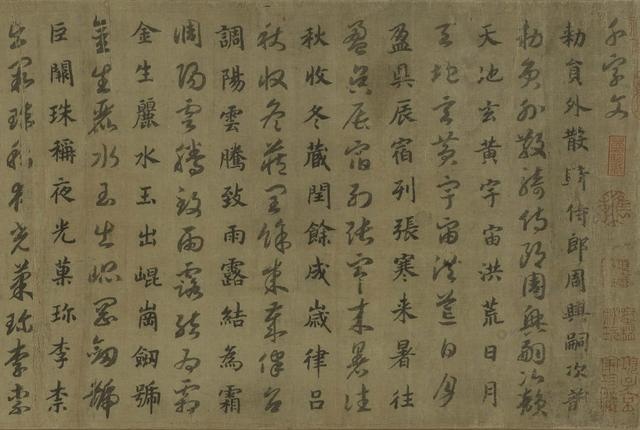 千字文
勅員外散騎侍郎周興嗣次韵
勅員外散騎侍郎周興嗣次韻
天地玄黃宇宙洪荒日月
天地玄黃宇宙洪荒日月
盈昃辰宿列張寒来暑往
盈昃辰宿列張寒来暑往
秋收冬蔵閏餘成歲律呂
秋收冬蔵閏餘成歲律呂
調陽雲騰致雨露結為霜
調陽雲騰致雨露結為霜
金生麗水玉出崐崗劒號
金生麗水玉出崐崗劒號
巨闕珠稱夜光菓珎李柰
巨闕珠稱夜光菓珎李柰